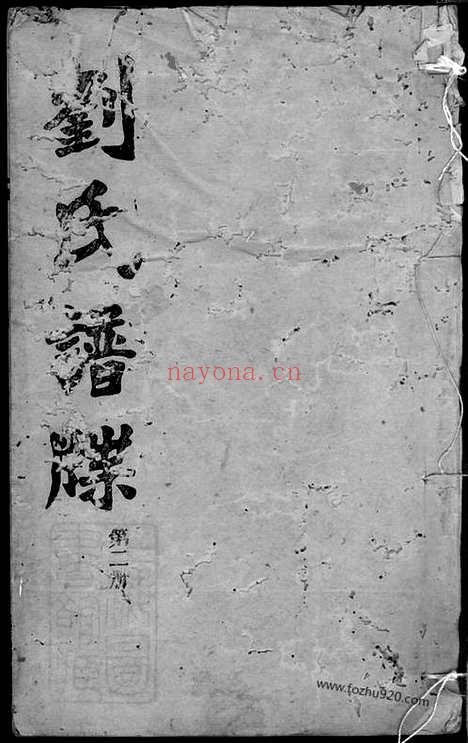 劉氏譜牒
第二册
nayona.cn
www.fozhu920.com